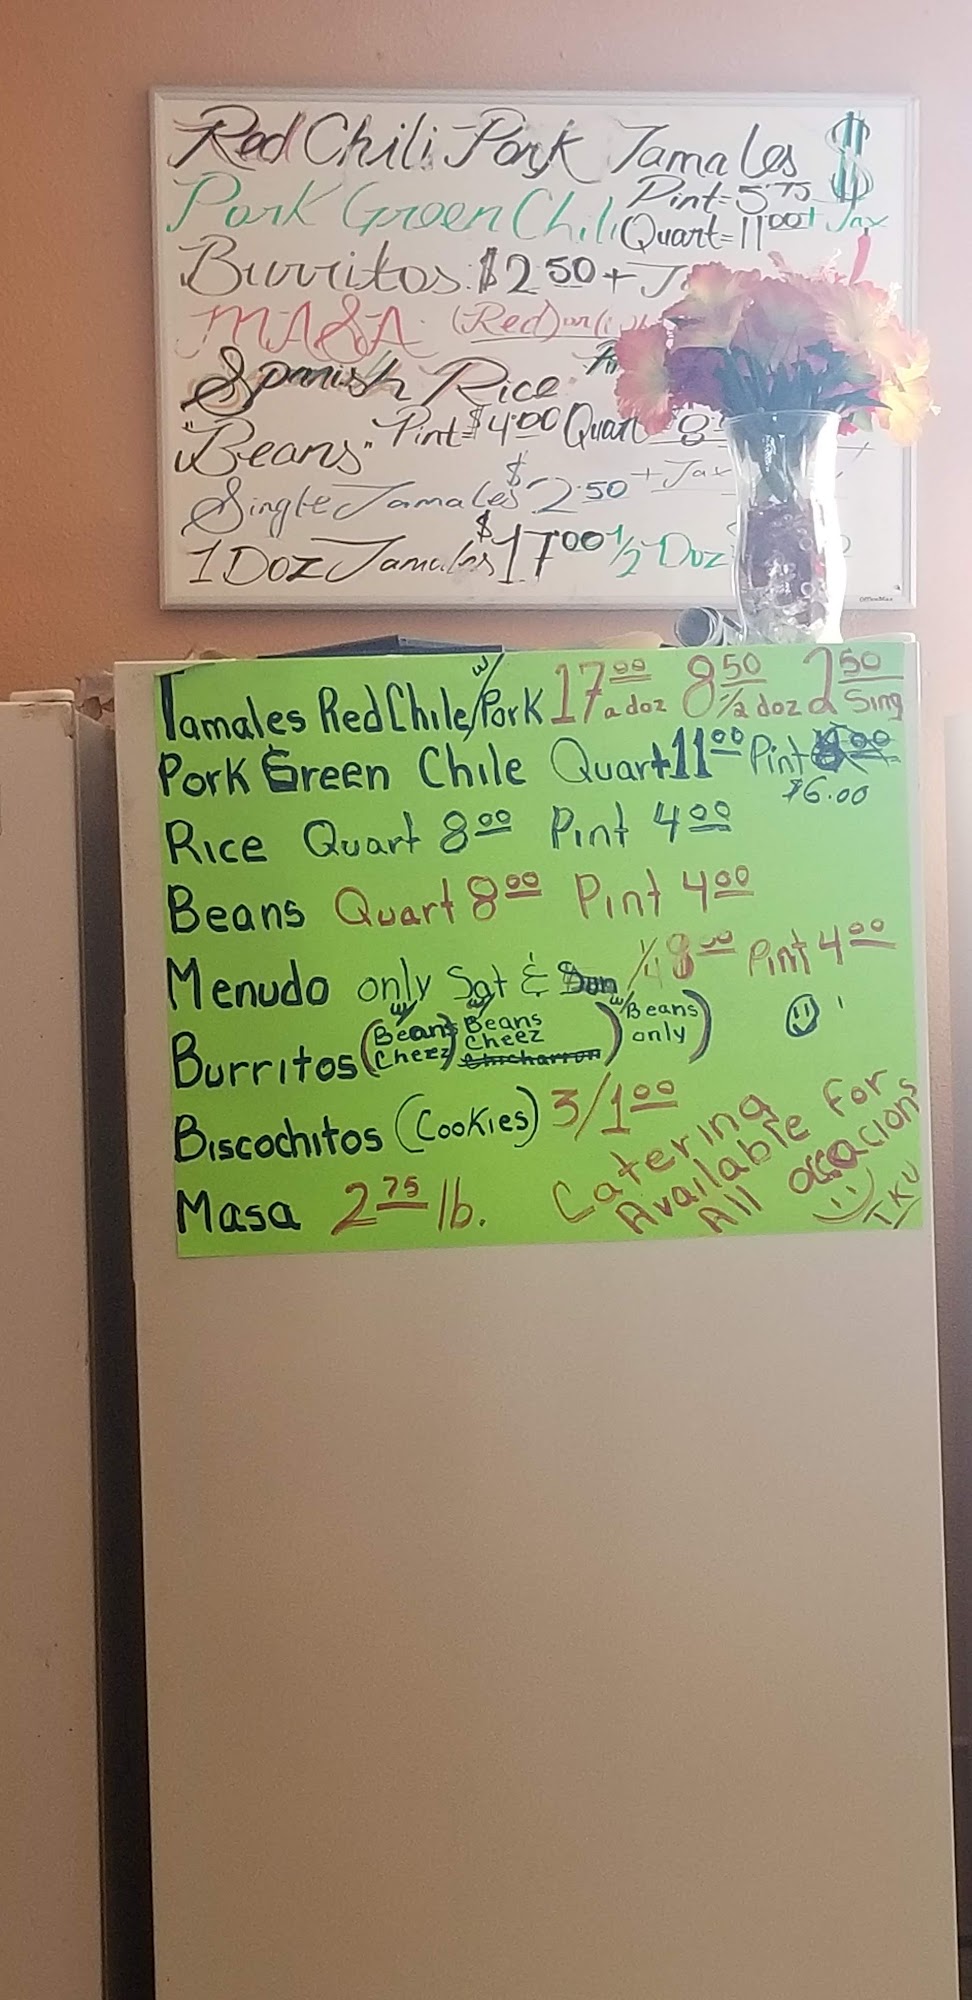 Red Chili Pork Tamales $
Pork Green Chili Pint=5.75
Quart=11.00+Tax
Burritos: $2.50+
MASA (Red)
Spanish Rice
"Beans" Pint=$4.00 Quart
Single Tamales $2.50 +Tax
1 Doz Tamales $17.00 1/2 Doz
Tamales Red Chile w/ Pork 17.00 a doz 8.50 1/2 doz 2.50 Sing
Pork Green Chile Quart 11.00 Pint
$6.00
Rice Quart 8.00 Pint 4.00
Beans Quart 8.00 Pint 4.00
Menudo only Sat & Sun 1/4 8.00 Pint 4.00
Burritos (w/ Beans Cheez) w/ Beans Cheez Chicharron) w/ Beans only)
Biscochitos (Cookies) 3/1.00
Masa 2.75 lb.
Catering
Available For
All occacions
TKU